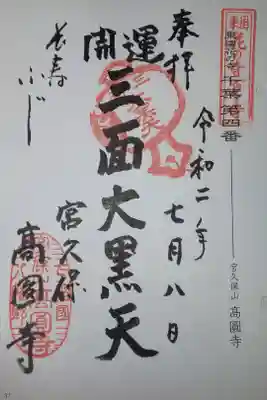 千葉第四番
宮久保山 高圓寺
奉拝
令和二年七月八日
開運
三面大黒天
宮久保
長寿
ふじ
高圓寺